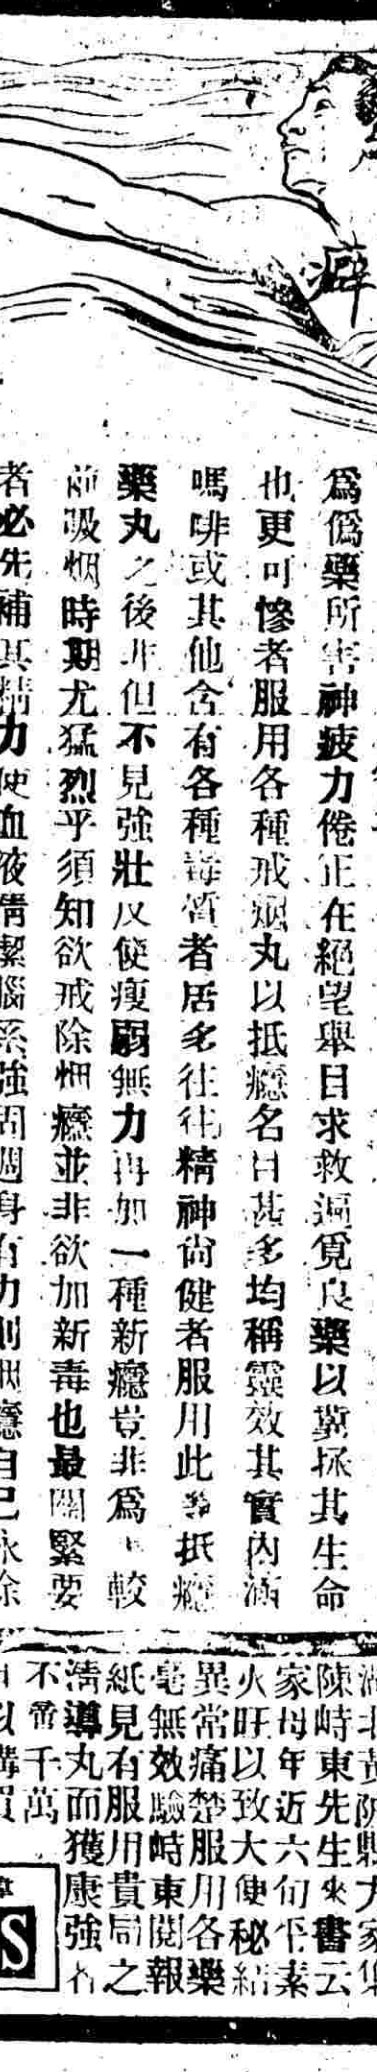 癖
為偽藥所害神疲力倦正在絕望舉目求救遍覓良藥以冀拯其生命
也更可慘者服用各種戒烟丸以抵癮名目甚多均稱靈效其實內涵
嗎啡或其他含有各種毒質者居多往往精神尚健者服用此等抵癮
藥丸之後非但不見強壯反使瘦弱無力再加一種新癮豈非為 較
前吸烟時期尤猛烈乎須知欲戒除烟癮並非欲加新毒也最關緊要
者必先補其精力使血液清潔腦系強固週身有力則烟癮自己永除
湖北黃陂縣大家集
陳峙東先生來書云
家母年近六旬平素
火旺以致大便秘結
異常痛楚服用各藥
毫無效驗峙東閱報
紙見有服用貴局之
清導丸而獲康強者
不啻千萬
以購買
S